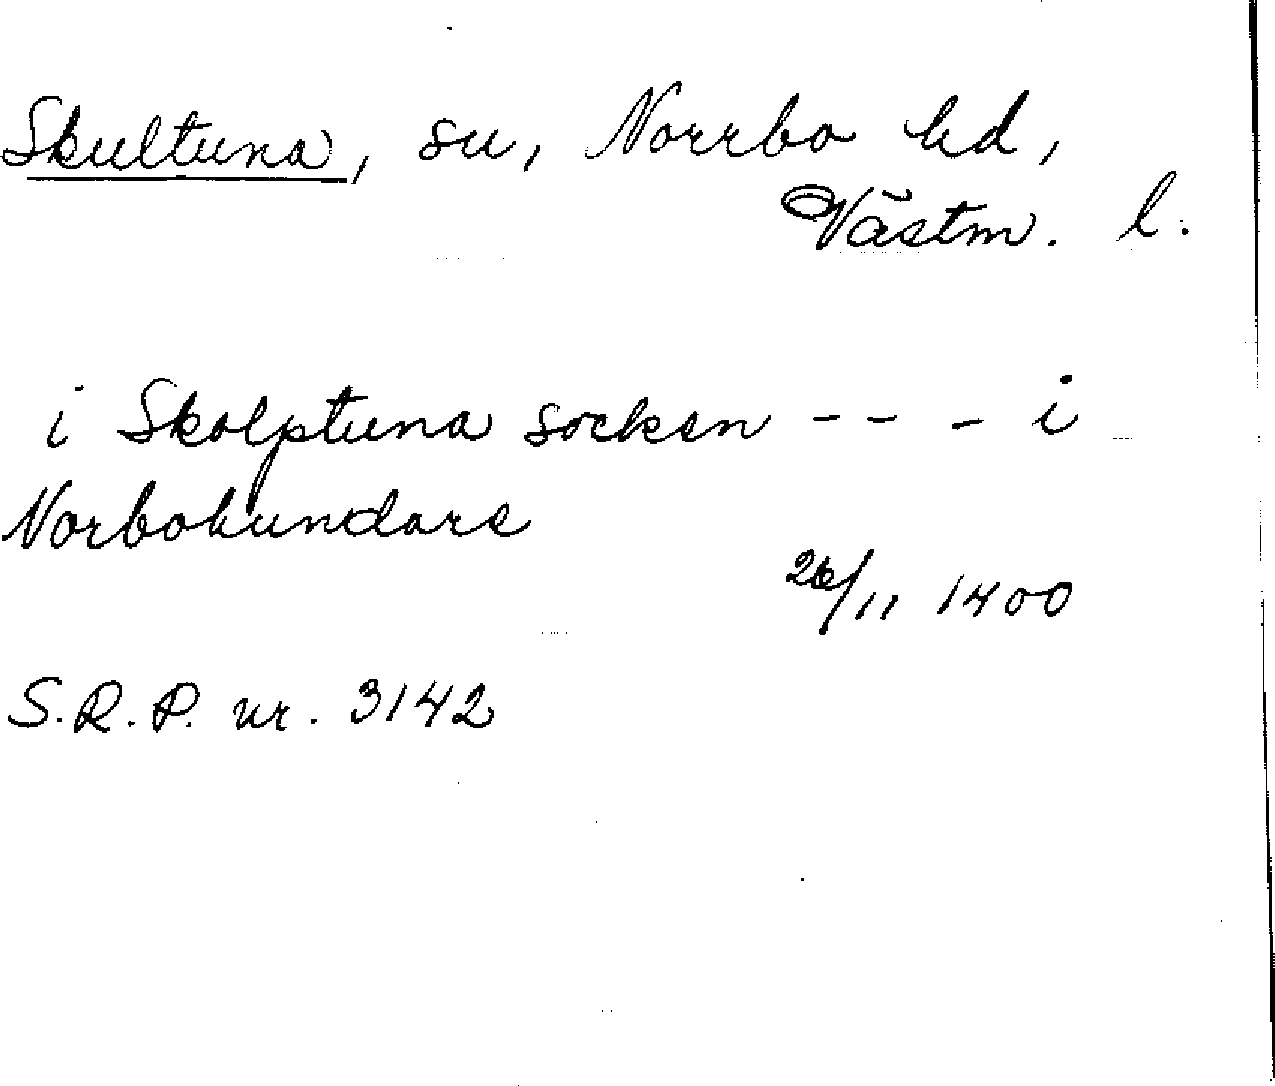 Skultuna, sn, Norrbo hd,
Västm. l.
i Skolptuna socken - - - i
Norbohundare
26/11 1400
S.R.P. nr. 3142